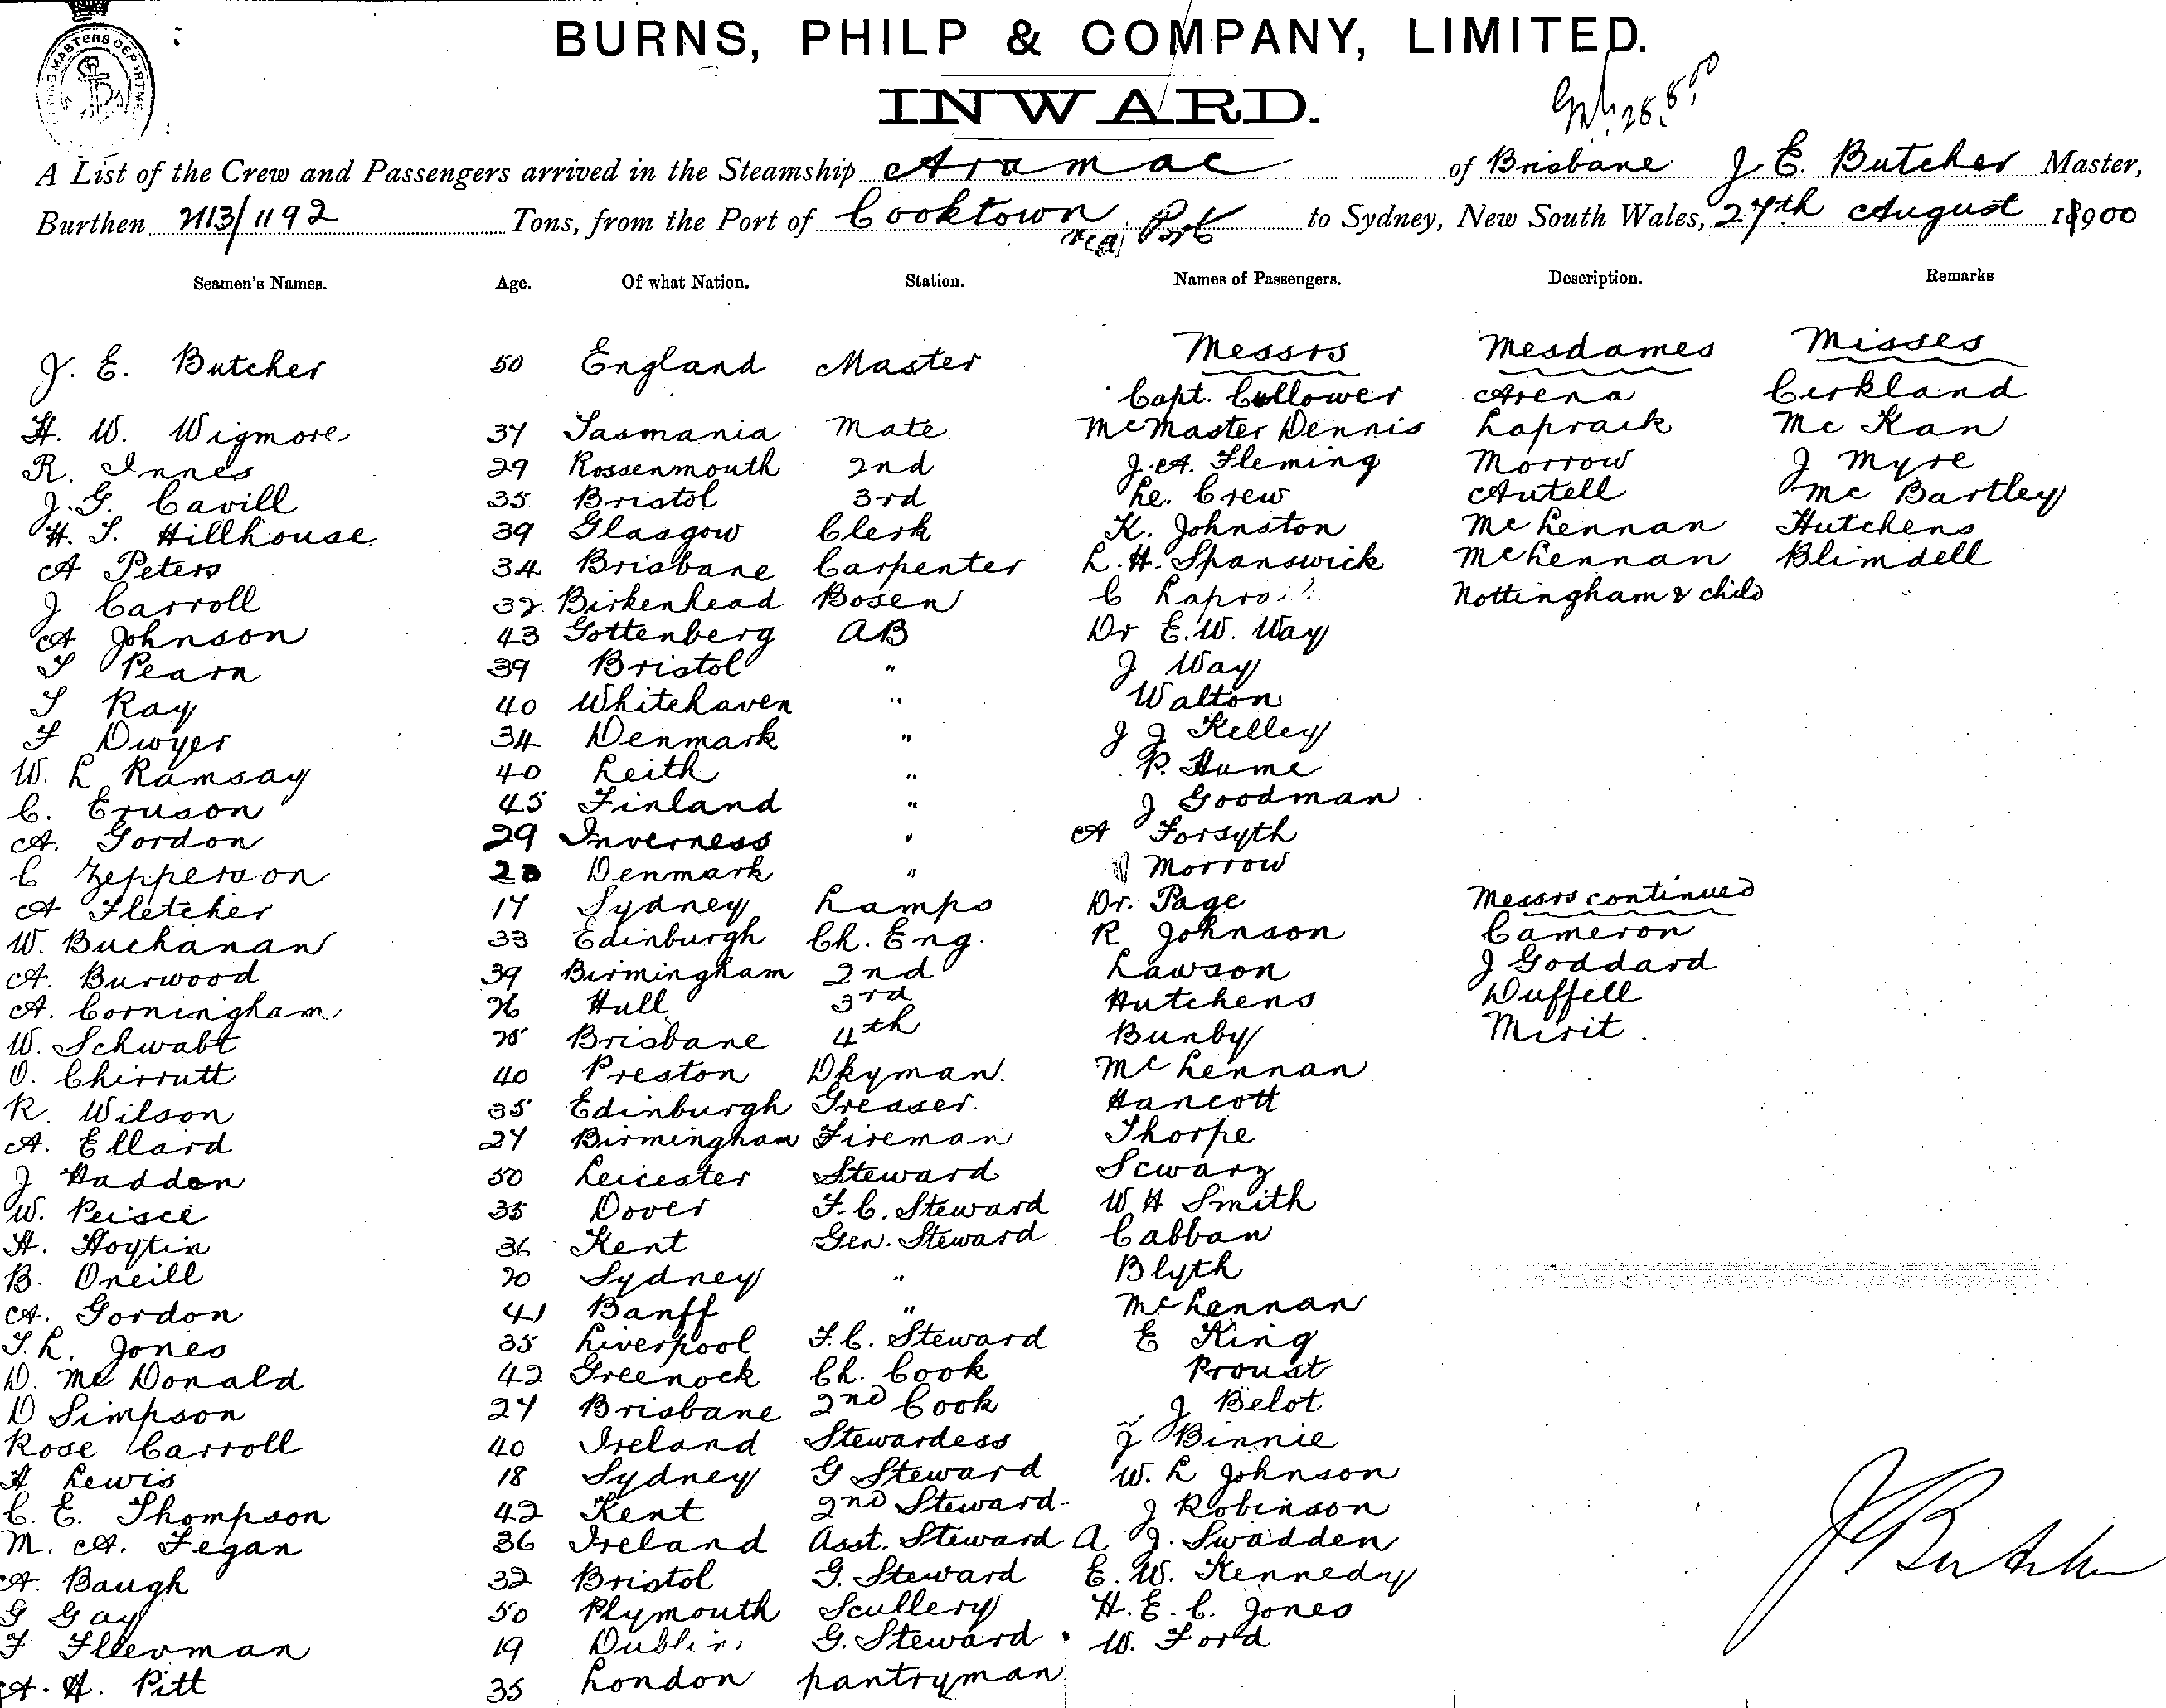 BURNS, PHILP & COMPANY, LIMITED.
INWARD.
A List of the Crew and Passengers arrived in the Steamship Aramac of Brisbane J E. Butcher Master,
Burthen 2113/1192 Tons, from the Port of Cooktown to Sydney, New South Wales, 27th August 1900
Seamen's Names. Age. Of what Nation. Station. Names of Passengers. Description. Remarks
Messrs Mesdames Misses
J. E. Butcher 50 England Master
Capt. Cullower Arena Cirkland
H. W. Wigmore 37 Tasmania Mate McMaster Dennis Laprack Mc Kan
R. Innes 29 Rossenmouth 2nd J. A. Fleming Morrow J Myre
J. G. Cavill 35 Bristol 3rd Le. Crew Autell Mc Bartley
H. T. Hillhouse 39 Glasgow Clerk K. Johnston McLennan Hutchens
A Peters 34 Brisbane Carpenter L. H. Spanswick McLennan Blimdell
J Carroll 32 Birkenhead Bosen C Nottingham & child
A Johnson 43 Gottenberg AB Dr E. W. Way
T Pearn 39 Bristol " J Way
T Ray 40 Whitehaven " Walton
F Dwyer 34 Denmark " J J Kelley
W. L Ramsay 40 Leith " P. Hume
C. Eruson 45 Finland " J Goodman
A. Gordon 29 Inverness " A Forsyth
C Zepperson Denmark " Morrow
A Fletcher 17 Sydney Lamps Dr. Page Messrs continued
W. Buchanan 33 Edinburgh Ch. Eng. R Johnson Cameron
A. Burwood 39 Birmingham 2nd Lawson J Goddard
A. Corningham 26 Hull 3rd Hutchens Duffell
W. Schwabt 25 Brisbane 4th Bunby Mirit.
O. Chirrutt 40 Preston Dkyman. McLennan
R. Wilson 35 Edinburgh Greaser. Hancott
A. Ellard 27 Birmingham Fireman Thorpe
J Haddon 50 Leicester Steward Scwarz
W. Peisce 35 Dover F. C. Steward W H Smith
H. Hoytin 36 Kent Gen. Steward Cabban
B. Oneill 20 Sydney " Blyth
A. Gordon 41 Banff " McLennan
T. L. Jones 35 Liverpool F. C. Steward E King
D. Mc Donald 42 Greenock Ch. Cook Proust
D Simpson 27 Brisbane 2nd Cook J Belot
Rose Carroll 40 Ireland Stewardess J Binnie
A Lewis 18 Sydney G Steward W. L Johnson
C. E. Thompson 42 Kent 2nd Steward J Robinson
M. A. Fegan 36 Ireland Asst. Steward A J. Swadden
A. Baugh 32 Bristol G. Steward E. W. Kennedy
G Gay 50 Plymouth Scullery H. E. C. Jones
F Fleerman 19 Dublin G. Steward W. Ford
A. H. Pitt 35 London pantryman
J Butcher